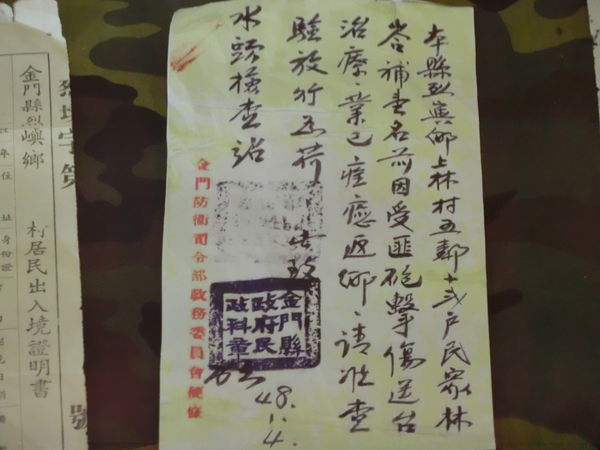 本縣烈嶼鄉上林村五鄰十弍戶民眾林
補壹名前因受匪砲擊傷送台
治療、業已痊癒返鄉、請准查
驗放行為荷、此致
水頭檢查站
金門防衛司令部政務委員會便條
金門縣
政府民
政科章
48.1.4.
字第 號
金門縣烈嶼鄉 村居民出入境證明書